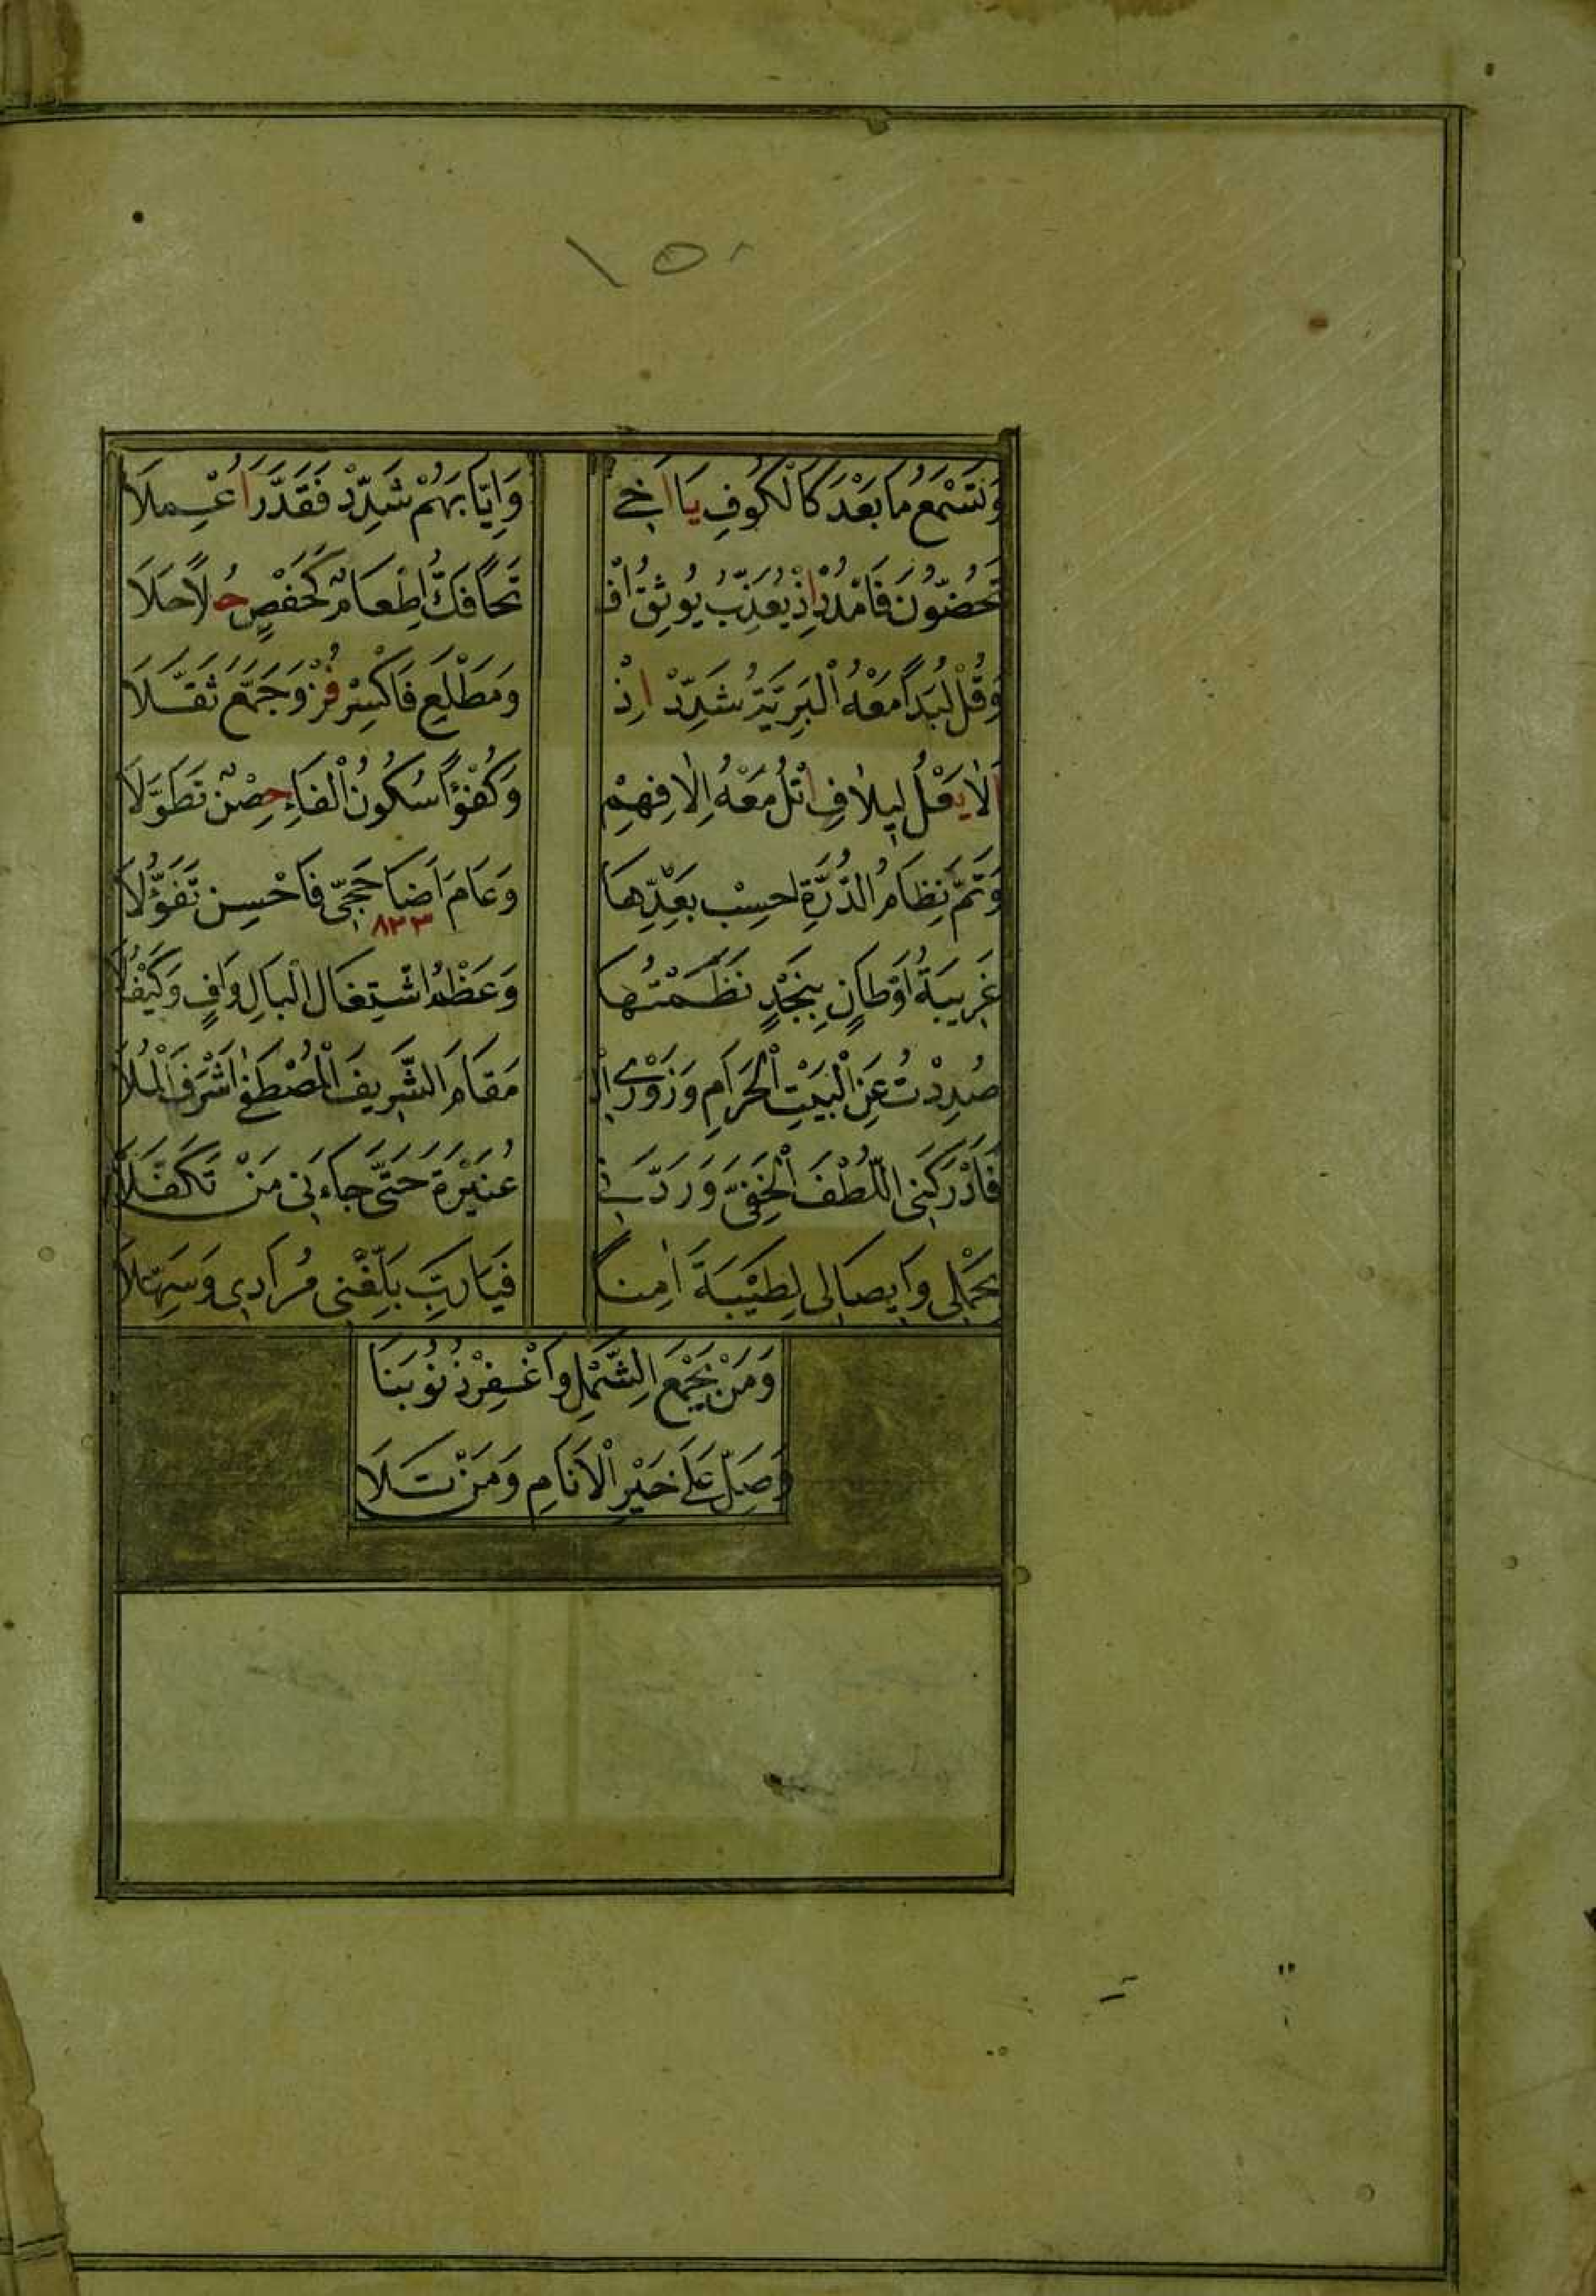 ١٥٠
وَتَسْمَعُ مَا بَعْدُ كَالْكُوفِ يَا اَخِي وَاِيَّابَهُمْ شَدِّدْ فَقَدَّرَ اُعْمِلَا
تَحُضُّونَ فَامْدُدْ اِذْ يُعَذِّبُ يُوثِقُ افْ تَحًا فَكُّ اِطْعَامٌ كَحَفْصٍ حُلًا حَلَا
وَقُلْ لُبَدًا مَعْهُ الْبَرِيَّةِ شَدِّدْ اِذْ وَمَطْلَعِ فَاكْسِرْ فُزْ وَجَمَّعَ ثَقَّلَا
اَلَا يَعْلُ لِيلَافِ اتْلُ مَعْهُ اِلَافِهِمْ وَكُفْؤًا سُكُونُ الْفَاءِ حِصْنٌ تَطَوَّلَا
وَتَمَّ نِظَامُ الدُّرَّةِ احسِبْ بِعَدِّهَا وَعَامَ اَضَا حَجِّي فَاحْسِن تَفَوُّلَا
٨٢٣
غَرِيبَةُ اَوْطَانٍ بِنَجْدٍ نَظَمْتُهَا وَعَظْمُ اشْتِغَالِ الْبَالِ وَافٍ وَكَيْفَ لَا
صُدِدْتُ عَنِ الْبَيْتِ الْحَرَامِ وَزَوْرِي الْ مَقَامَ الشَّرِيفَ الْمُصْطَفٰى اَشْرَفَ الْمُلَا
فَاَدْرَكَنِي اللُّطْفُ الْخَفِيُّ وَرَدَّنِي عُنَيْزَةَ حَتَّى جَاءَنِي مَنْ تَكَفَّلَا
بِحَمْلِي وَاِيصَالِي لِطَيْبَةَ اٰمِنًا فَيَا رَبِّ بَلِّغْنِي مُرَادِي وَسَهِّلَا
وَمَنْ يَجْمَعِ الشَّمْلَ وَاغْفِرْ ذُنُوبَنَا
وَصَلِّ عَلَى خَيْرِ الْاَنَامِ وَمَنْ تَلَا